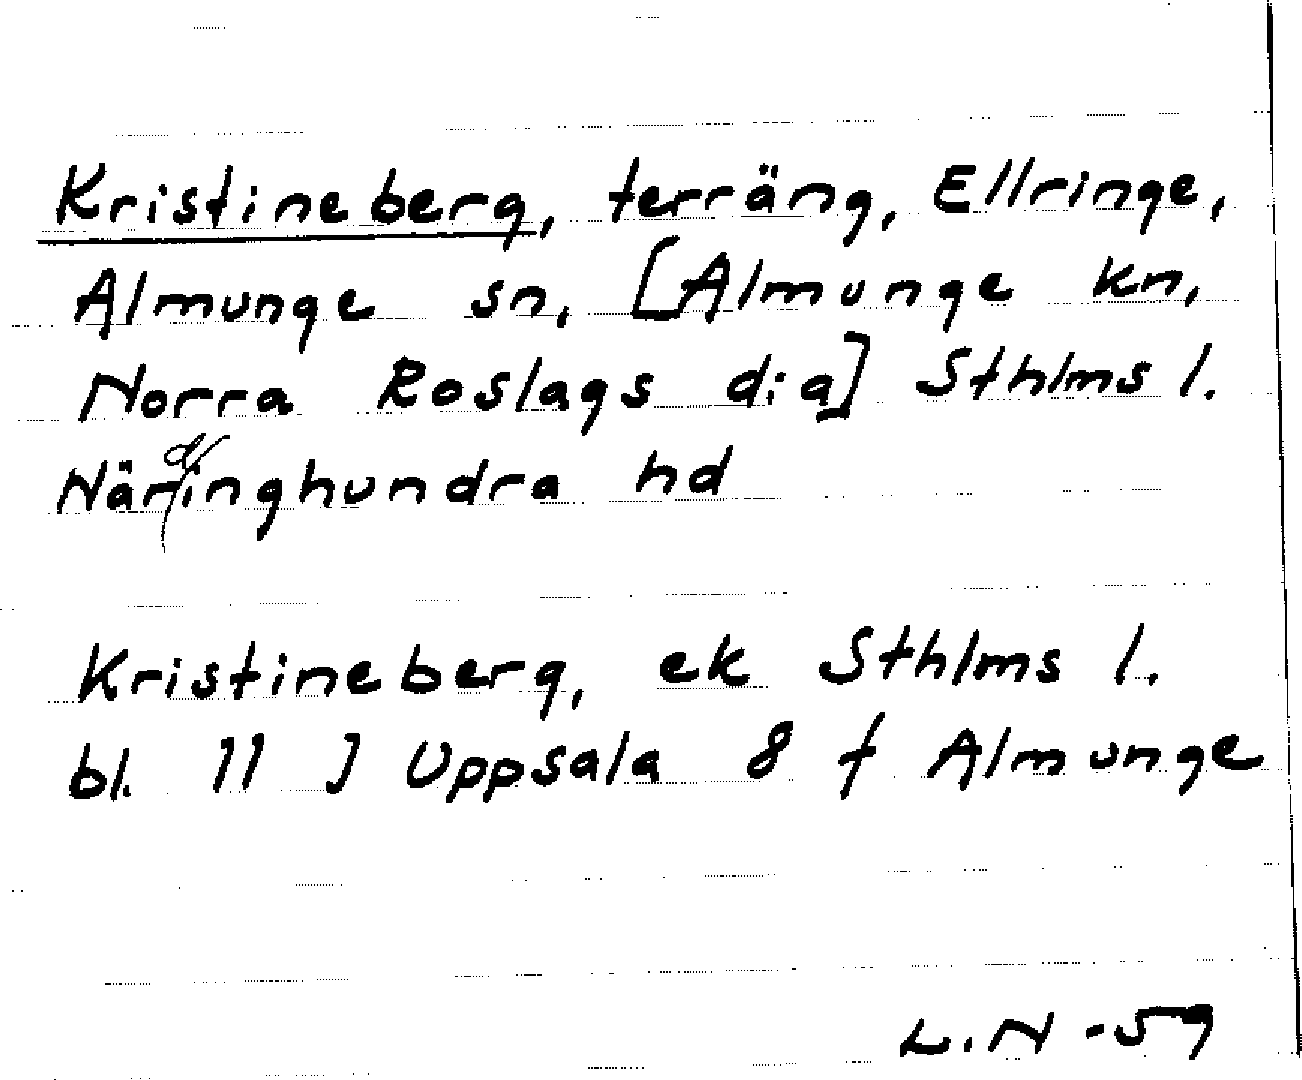 Kristineberg, terräng, Ellringe,
Almunge sn, [Almunge kn,
Norra Roslags dia] Sthlms l.
Närdinghundra hd
Kristineberg, ek Sthlms l.
bl. 11 J Uppsala 8 f Almunge
L.N -59